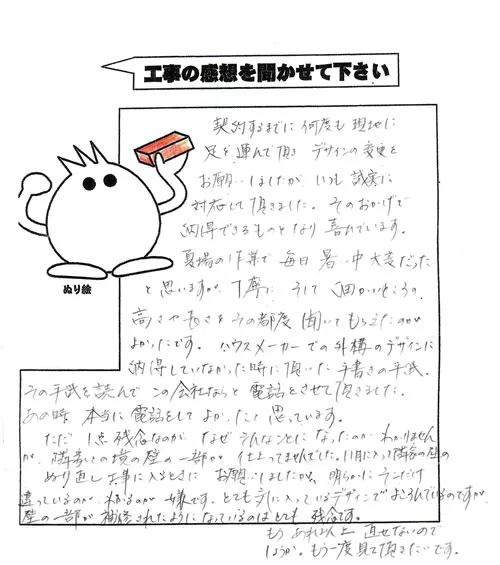 工事の感想を聞かせて下さい
契約するまでに何度も現地に
足を運んで頂き デザインの変更を
お願いしましたが、いつも誠実に
対応して頂きました。そのおかげで
納得できるものとなり喜んでいます。
夏場の作業で毎日暑い中大変だった
と思いますが、丁寧に そして細かいところの
高さや長さをその都度聞いてもらえたのが
よかったです。ハウスメーカーでの外構のデザインに
納得していなかった時に頂いた手書きの手紙。
ぬり絵
その手紙を読んでこの会社ならと電話をさせて頂きました。
あの時 本当に電話をしてよかったと思っています。
ただ 1点残念なのが、なぜそんなことになったのかわかりません
が、隣家との境の壁の一部が仕上ってませんでした。11月に入って隣家の壁の
ぬり直し工事に入るときに お願いしましたが、明らかにそこだけ
違っているのが わかるのが 嫌です。とても気に入っているデザインでよろこんでいるのですが、
壁の一部が補修されたようになっているのはとても 残念です。
もうあれ以上 直せないので
しょうか。もう一度見て頂きたいです。